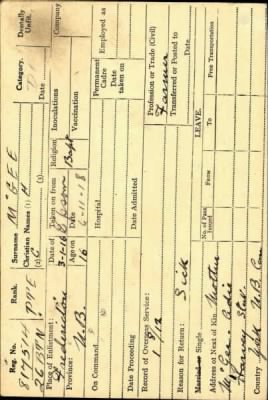 Reg. No. 817514 Rank. PTE Surname McGEE Category. Dentally Unfit.
26 BTN. Christian Names (1) H (2) C (3) Date
Place of Enlistment: Fredericton Date of 3-1-16 Taken on from Epsom Religion Inoculations Company
Province: N.B. Age—1916 Bapt 6-11-18
On Command. Hospital. Permanent Cadre Employed as
Date Proceeding Date Admitted Date taken on
Record of Overseas Service: Profession or Trade (Civil)
Farmer
Transferred or Posted to
Reason for Return: Sick Date.
Married or Single LEAVE.
Address of Next of Kin. Mother No. of Pass issued From To Free Transportation
Harvey Stn.
Country York N.B. Can